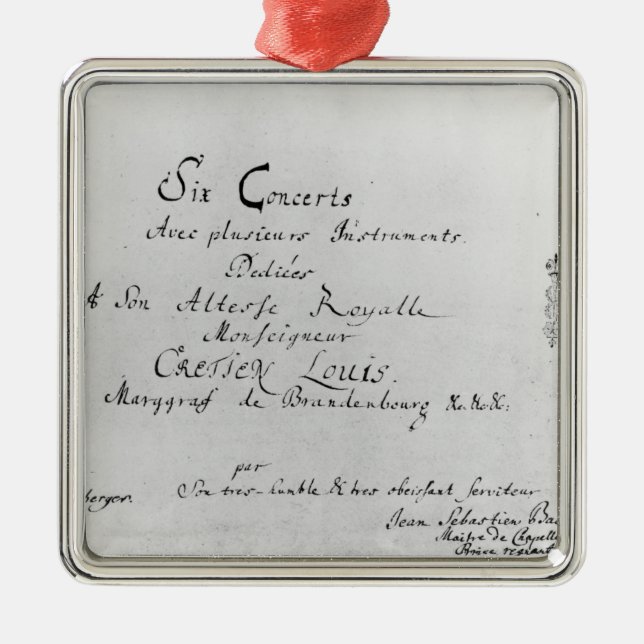 Six Concerts
Avec plusieurs Instruments.
Dediées
A Son Altesse Royalle
Monseigneur
CRETIEN LOUIS.
Marggraf de Brandenbourg &c. &c. &c:
par
Son tres-humble & tres obeissant serviteur
berger.
Jean Sebastien Bac
Maitre de Chapelle
Prince regnant